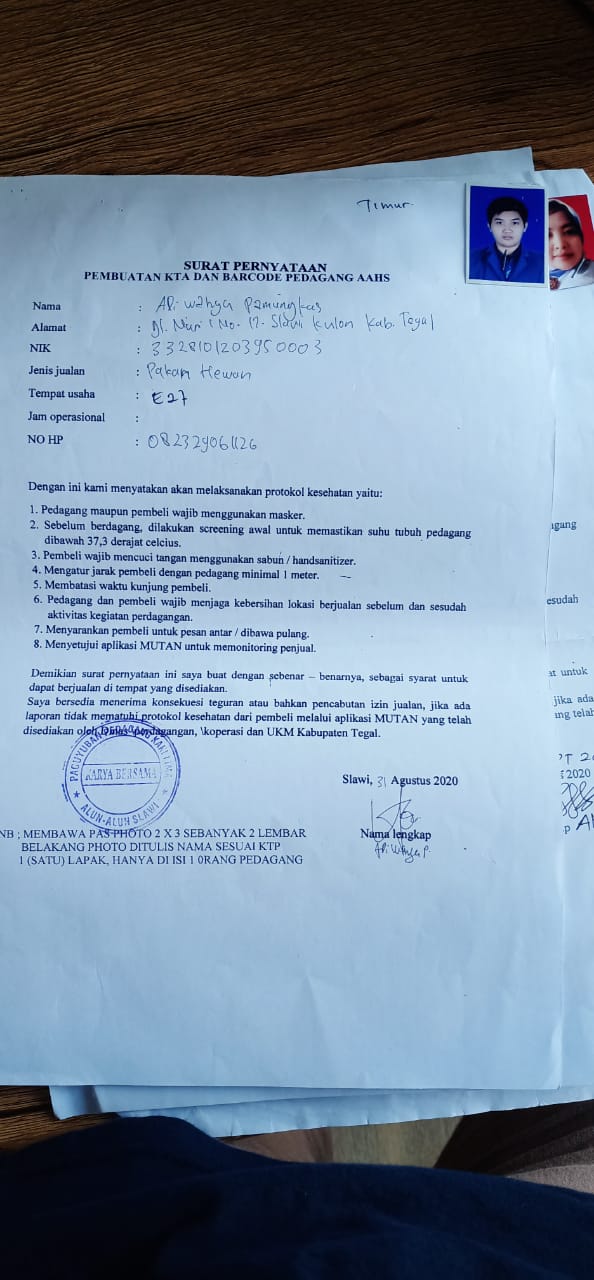 Timur
SURAT PERNYATAAN
PEMBUATAN KTA DAN BARCODE PEDAGANG AAHS
Nama : Adi wahyu Pamungkas
Alamat : Jl. Nuri 1 No. 17. Slawi Kulon Kab. Tegal
NIK : 3328101203950003
Jenis jualan : Pakan Hewan
Tempat usaha : E27
Jam operasional :
NO HP : 082329061126
Dengan ini kami menyatakan akan melaksanakan protokol kesehatan yaitu:
1. Pedagang maupun pembeli wajib menggunakan masker.
2. Sebelum berdagang, dilakukan screening awal untuk memastikan suhu tubuh pedagang
dibawah 37,3 derajat celcius.
3. Pembeli wajib mencuci tangan menggunakan sabun / handsanitizer.
4. Mengatur jarak pembeli dengan pedagang minimal 1 meter.
5. Membatasi waktu kunjung pembeli.
6. Pedagang dan pembeli wajib menjaga kebersihan lokasi berjualan sebelum dan sesudah
aktivitas kegiatan perdagangan.
7. Menyarankan pembeli untuk pesan antar / dibawa pulang.
8. Menyetujui aplikasi MUTAN untuk memonitoring penjual.
Demikian surat pernyataan ini saya buat dengan sebenar – benarnya, sebagai syarat untuk
dapat berjualan di tempat yang disediakan.
Saya bersedia menerima konsekuesi teguran atau bahkan pencabutan izin jualan, jika ada
laporan tidak mematuhi protokol kesehatan dari pembeli melalui aplikasi MUTAN yang telah
disediakan oleh Dinas perdagangan, \koperasi dan UKM Kabupaten Tegal.
PAGUYUBAN PEDAGANG KAKI LIMA
KARYA BERSAMA
ALUN-ALUN SLAWI
Slawi, 31 Agustus 2020
Nama lengkap
NB ; MEMBAWA PAS PHOTO 2 X 3 SEBANYAK 2 LEMBAR
BELAKANG PHOTO DITULIS NAMA SESUAI KTP
1 (SATU) LAPAK, HANYA DI ISI 1 0RANG PEDAGANG
esudah
untuk
jika ada
telah
2020